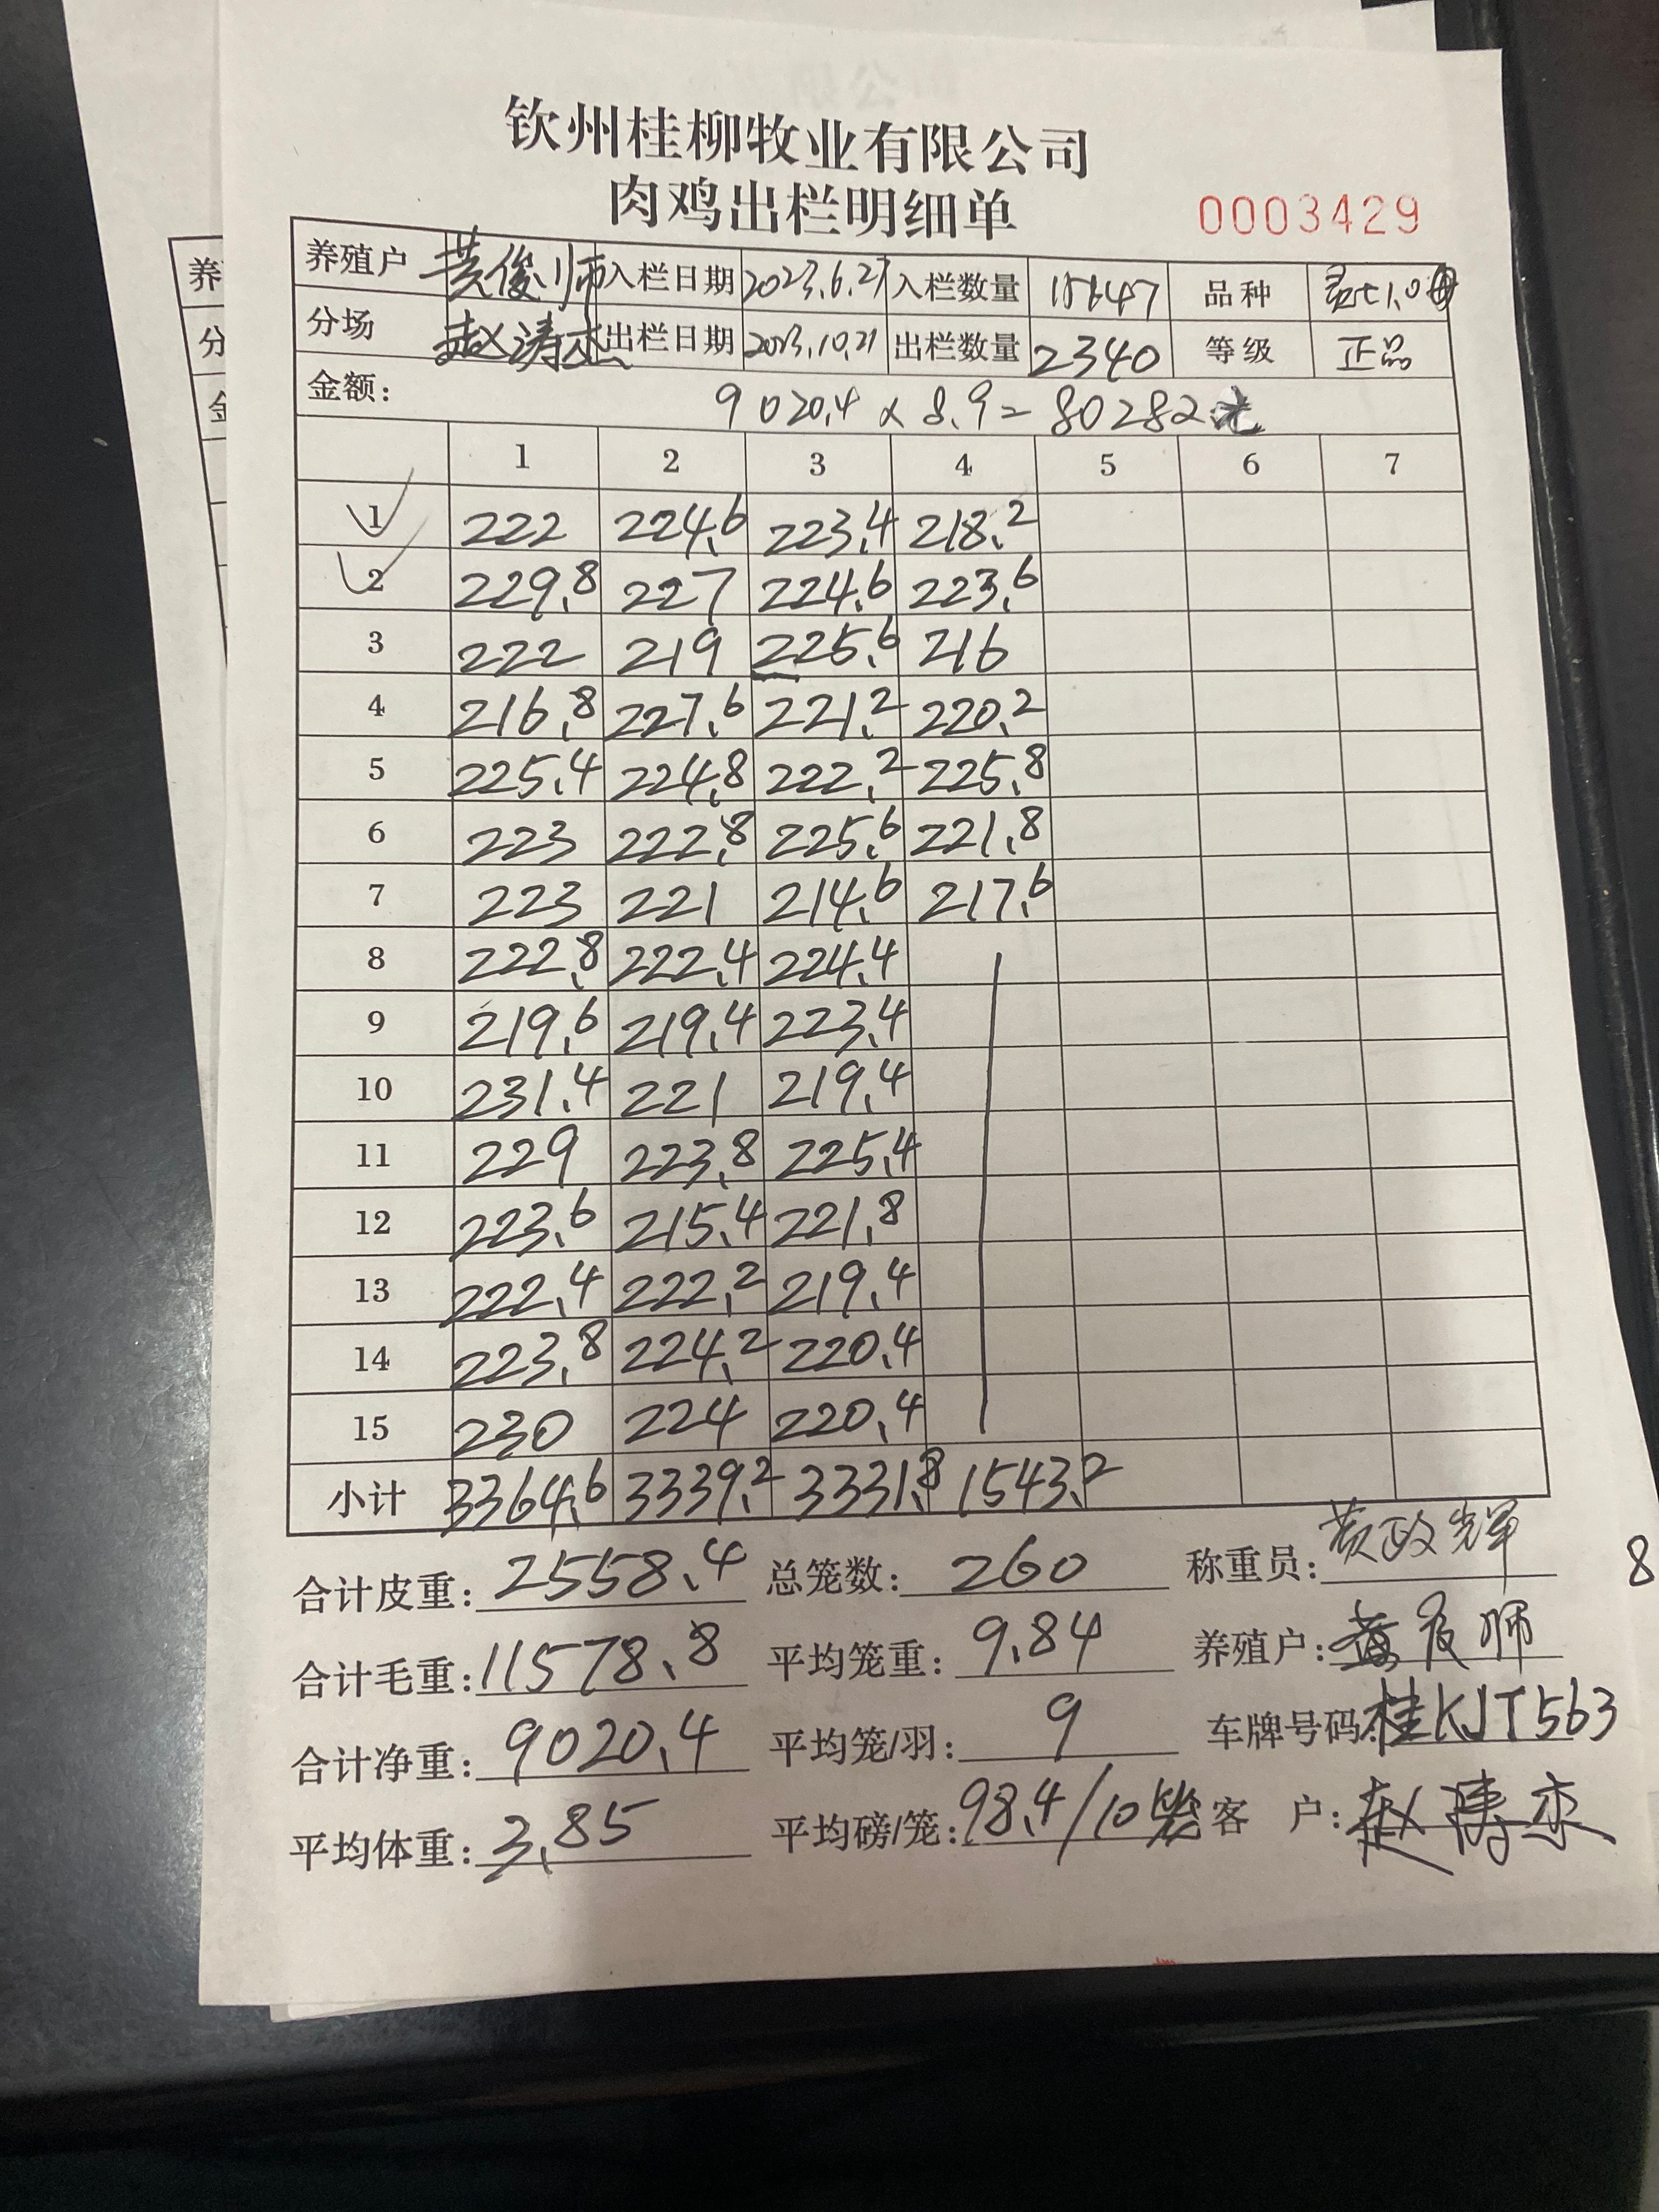 钦州桂柳牧业有限公司
肉鸡出栏明细单
0003429
养殖户 黄俊师 入栏日期 2023.6.27 入栏数量 15647 品种
分场 赵涛杰 出栏日期 2023.10.21 出栏数量 2340 等级 正品
金额: 9020.4 × 8.9 = 80282元
1 2 3 4 5 6 7
1 222 224.6 223.4 218.2
2 229.8 227 224.6 223.6
3 222 219 225.6 216
4 216.8 227.6 221.2 220.2
5 225.4 224.8 222.2 225.8
6 223 222.8 225.6 221.8
7 223 221 214.6 217.6
8 222.8 222.4 224.4
9 219.6 219.4 223.4
10 231.4 221 219.4
11 229 223.8 225.4
12 223.6 215.4 221.8
13 222.4 222.2 219.4
14 223.8 224.2 220.4
15 230 224 220.4
小计 3364.6 3339.2 3331.8 1543.2
合计皮重: 2558.4 总笼数: 260 称重员: 黄政辉 8
合计毛重: 11578.8 平均笼重: 9.84 养殖户: 黄俊师
合计净重: 9020.4 平均笼/羽: 9 车牌号码: 桂KJT563
平均体重: 3.85 平均磅/笼: 98.4/10笼 客 户: 赵涛杰
养
分
金